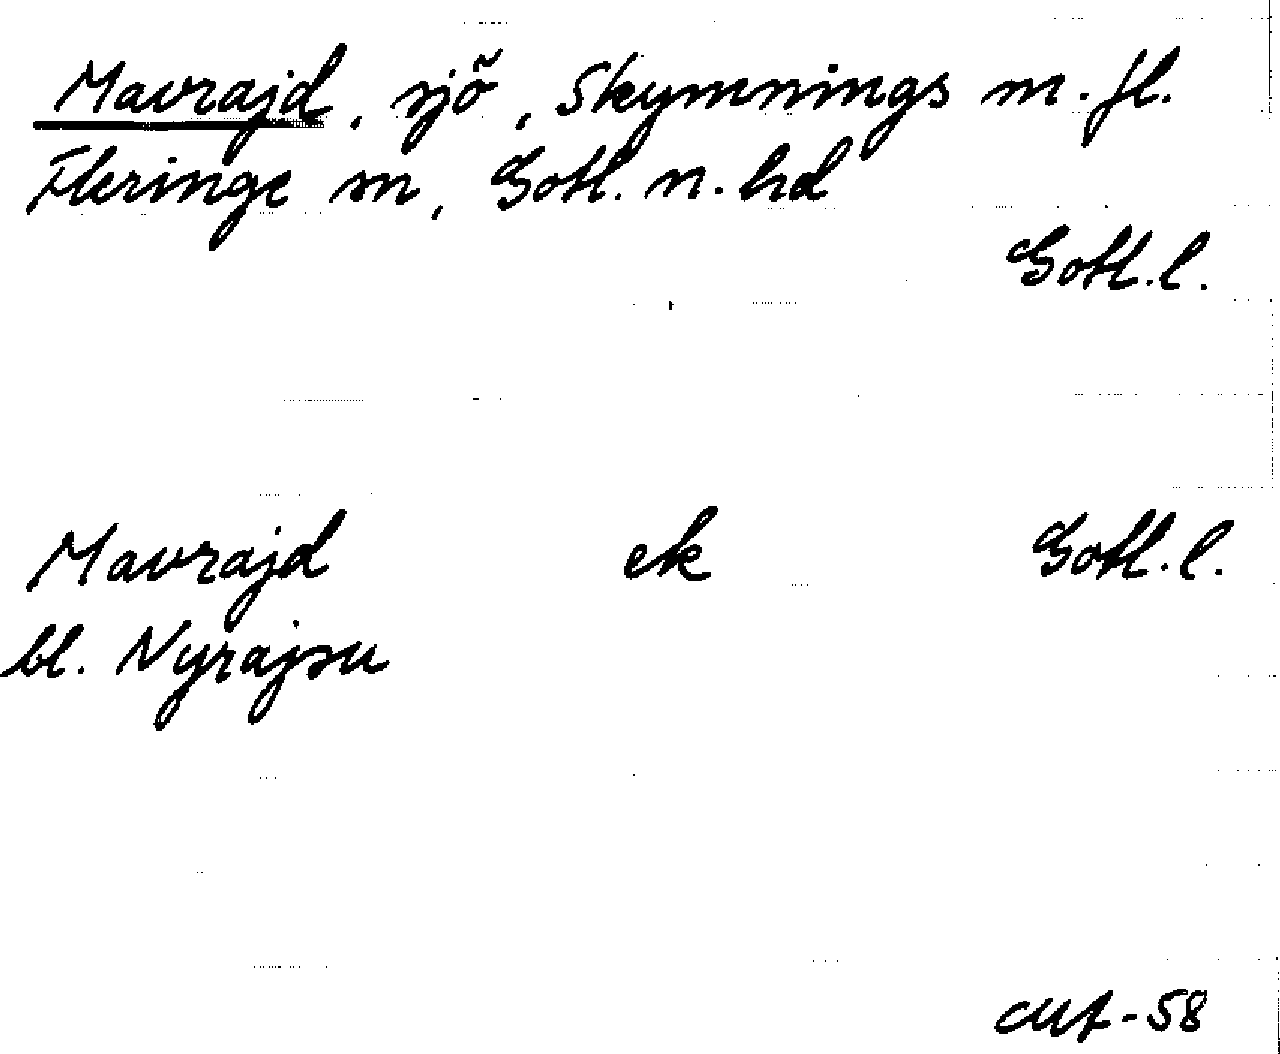 Mavrajd, sjö, Skymnings m.fl.
Fleringe sn, Gotl. n. hd
Gotl.l.
Mavrajd ek Gotl.l.
bl. Nyrajsu
-58